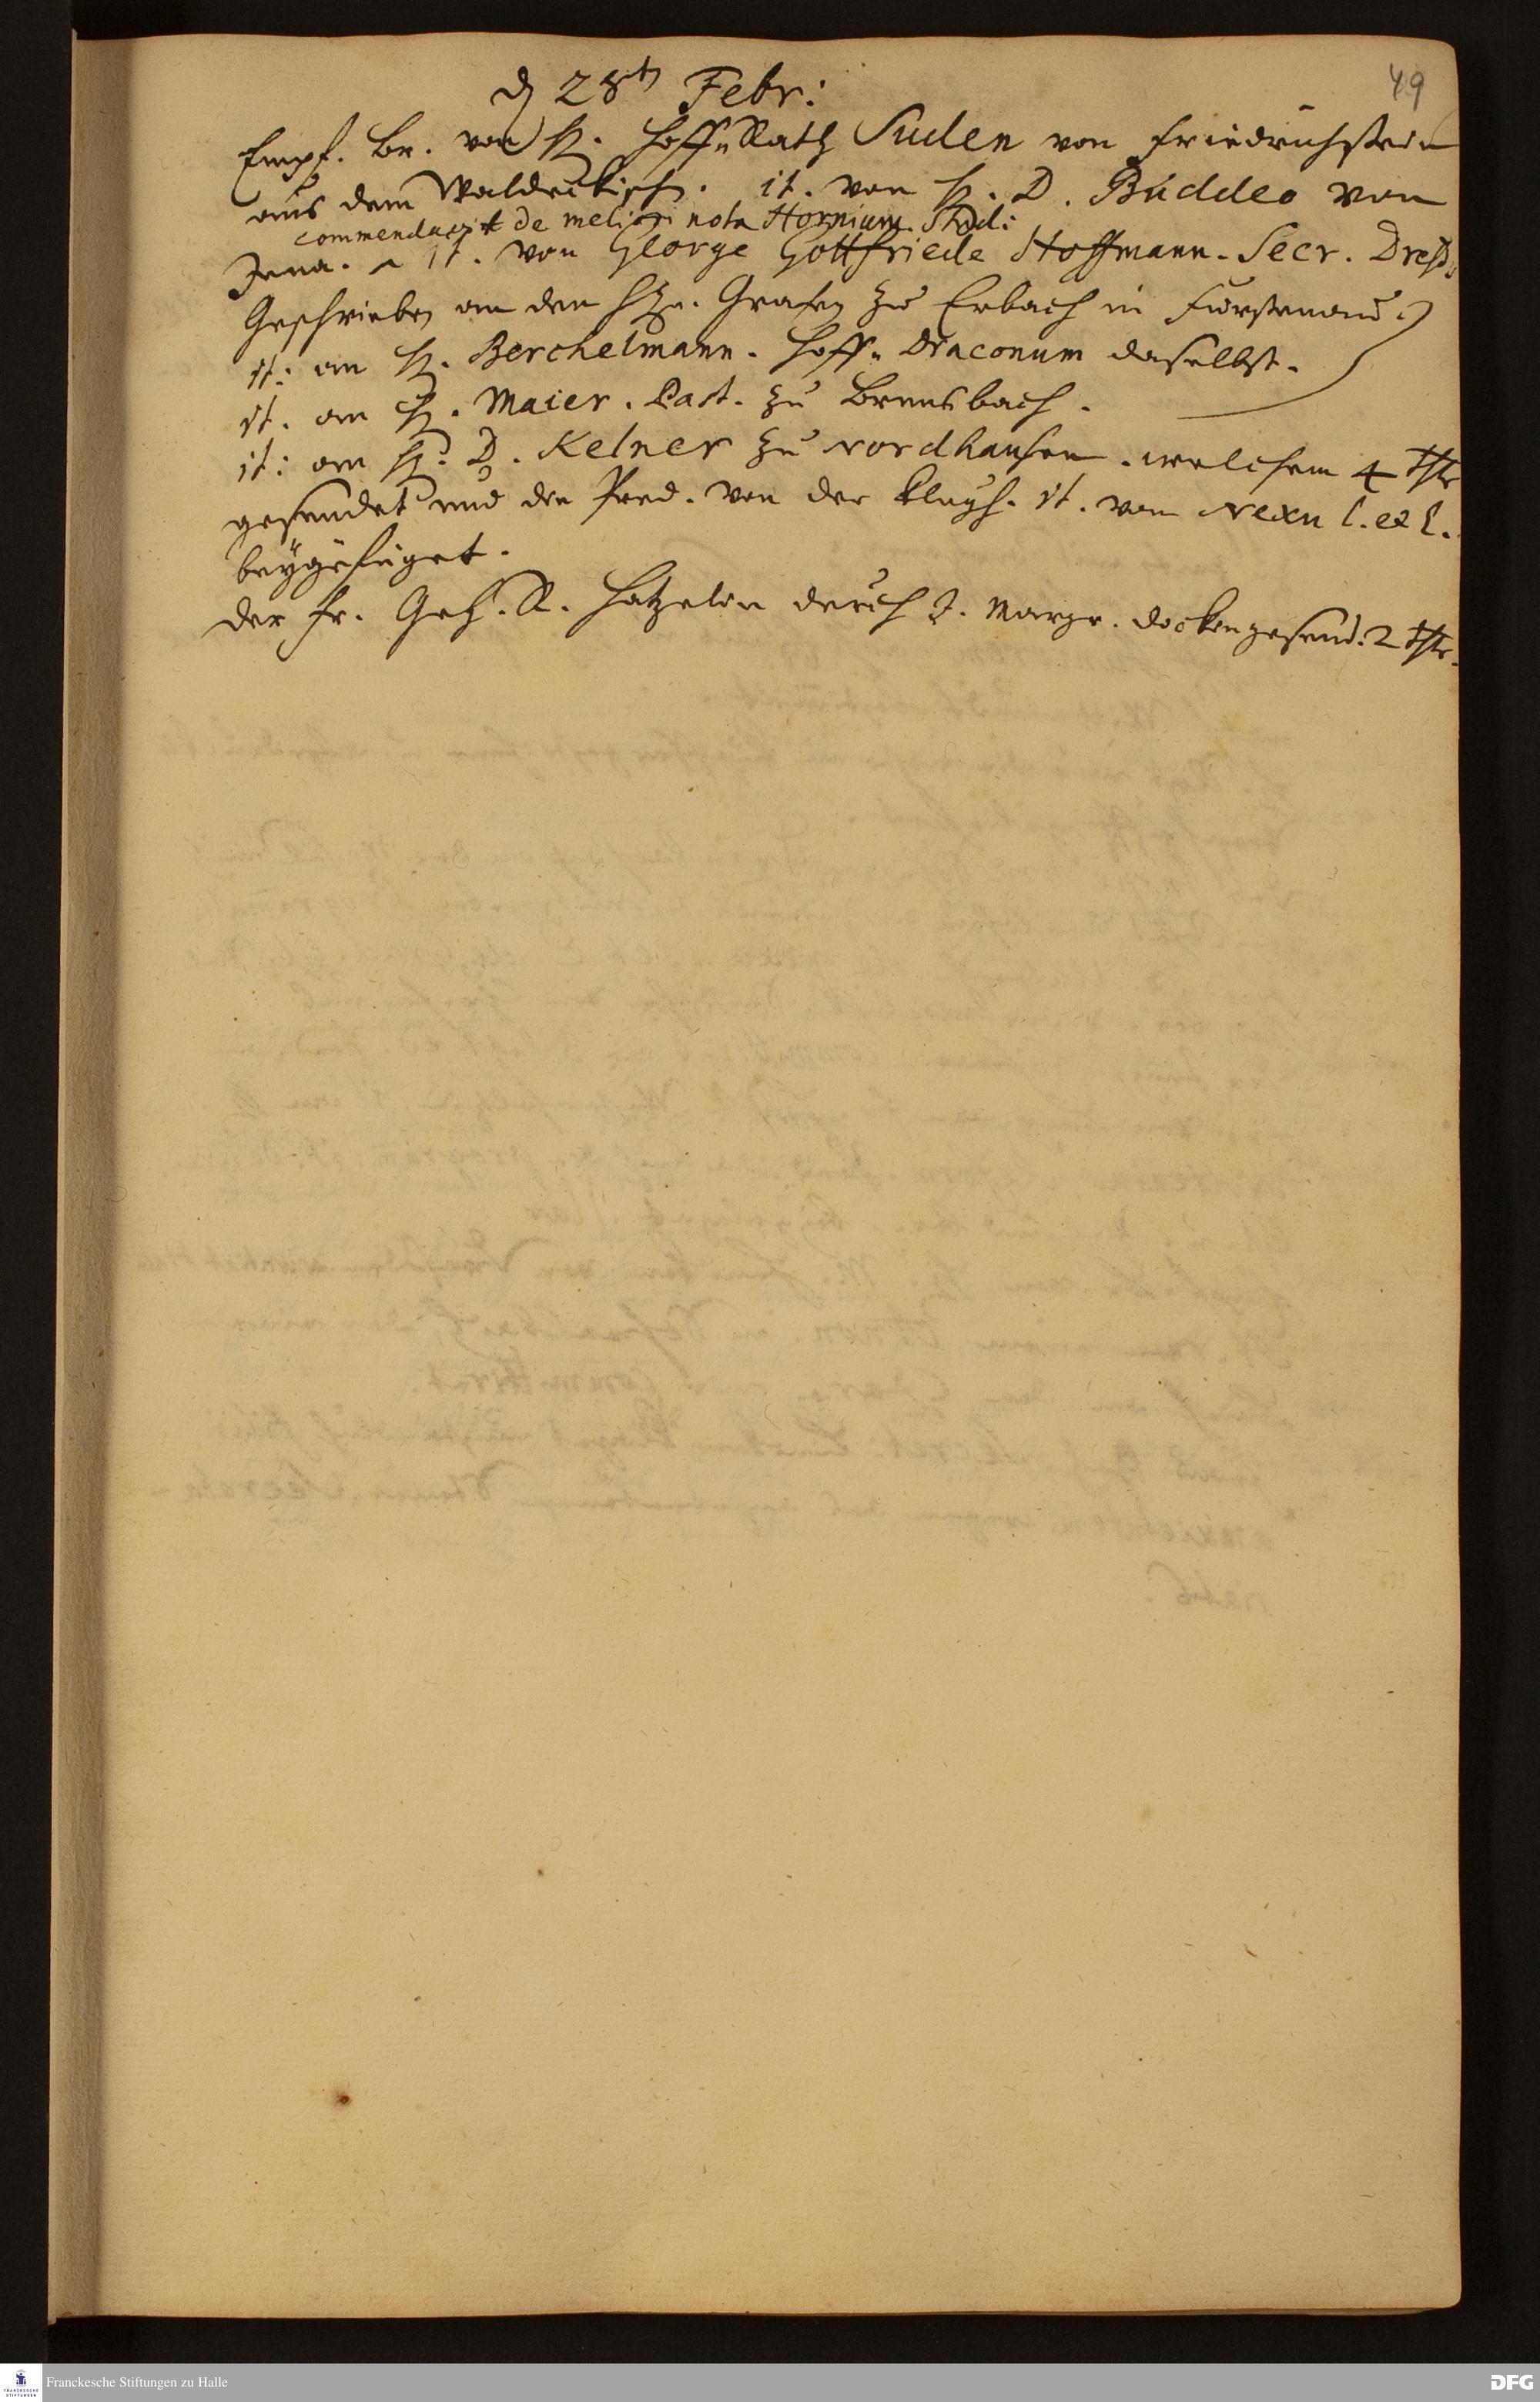 49
d 28th Febr:
Empf. Br. von H. Hoff-Rath Suden von Friedrichstein
aus dem Waldeckisch. it. von H. D. Buddeo von
commendavit de meliori nota Hornium Stud:
Jena. it. von George Gottfriede Hoffmann. Secr. Dresd.
Geschrieben an den Hn. Grafen zu Erbach in Fürstenau.
it: an H. Berchelmann. Hoff-Diaconum daselbst.
it. an H. Maier. Past. zu Brensbach.
it: an H. D. Kelner zu Nordhausen. welchem 4 Thlr
gesendet und die Pred. von der it. vom Nexu l. et E.
beygefüget.
Der Fr. Geh. R. durch J. Margr. gesend. 2 Thlr.
Franckesche Stiftungen zu Halle
DFG